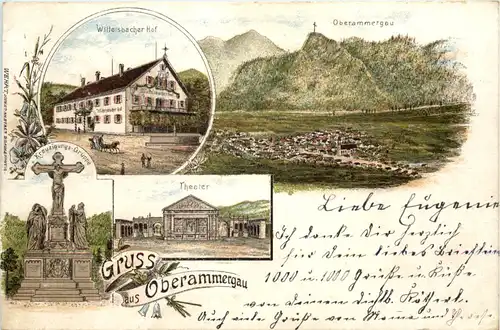 Wittelsbacher Hof
Oberammergau
Kreuzigungs-Gruppe
Theater
Gruss
aus Oberammergau
Liebe Eugenie
Ich danke Dir herzlich
für Dein liebes Brieflein
1000 u. 1000 Grüße u. Küße
von deinem
Auch viele Grüße von Mama und